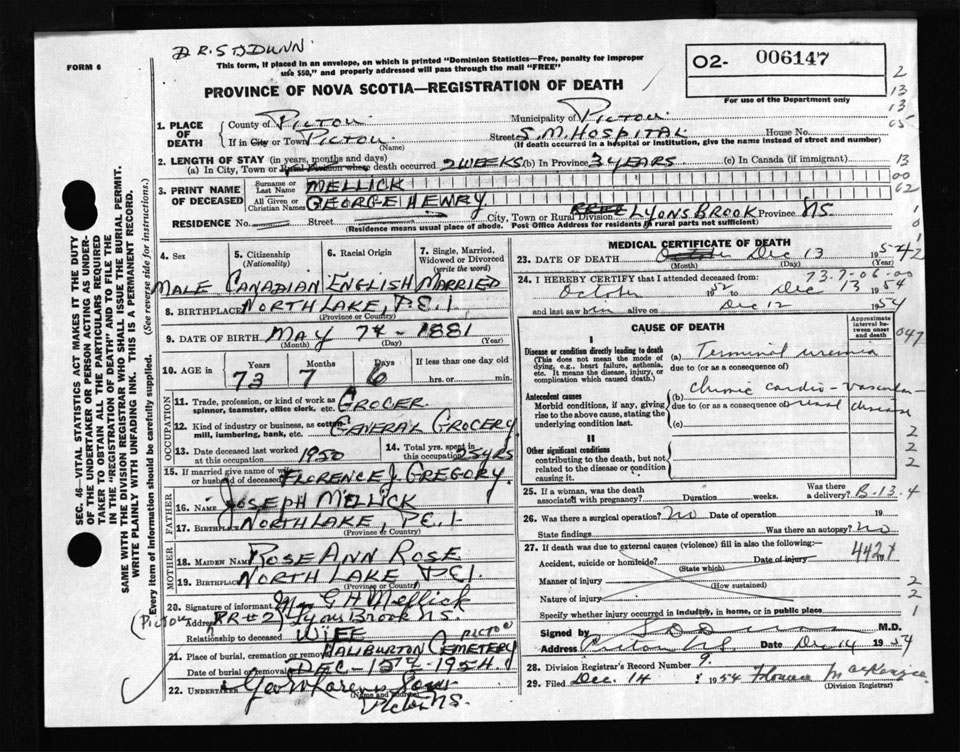 DR. S D DUNN
FORM 6
This form, if placed in an envelope, on which is printed "Dominion Statistics—Free, penalty for improper
use $50," and properly addressed will pass through the mail "FREE"
O2- 006147
For use of the Department only
PROVINCE OF NOVA SCOTIA—REGISTRATION OF DEATH
1. PLACE OF DEATH
County of PICTOU Municipality of PICTOU
If in City or Town PICTOU Street S.M. HOSPITAL House No.
(Name) (If death occurred in a hospital or institution, give the name instead of street and number)
2. LENGTH OF STAY (in years, months and days)
(a) In City, Town or Rural Division where death occurred 2 WEEKS (b) In Province 3 YEARS (c) In Canada (if immigrant)
3. PRINT NAME OF DECEASED
Surname or Last Name MELLICK
All Given or Christian Names GEORGE HENRY
RESIDENCE No. Street City, Town or Rural Division LYONS BROOK Province NS
(Residence means usual place of abode. Post Office Address for residents in rural parts not sufficient)
4. Sex 5. Citizenship (Nationality) 6. Racial Origin 7. Single, Married, Widowed or Divorced (write the word)
MALE CANADIAN ENGLISH MARRIED
8. BIRTHPLACE NORTH LAKE, P.E.I
(Province or Country)
9. DATE OF BIRTH MAY 7th - 1881
(Month) (Day) (Year)
10. AGE in Years Months Days If less than one day old
73 7 6 hrs. or min.
OCCUPATION
11. Trade, profession or kind of work as spinner, teamster, office clerk, etc. GROCER.
12. Kind of industry or business, as cotton mill, lumbering, bank, etc. GENERAL GROCERY
13. Date deceased last worked at this occupation 1950 14. Total yrs. spent in this occupation 25 YRS
15. If married give name of wife or husband of deceased FLORENCE J. GREGORY.
FATHER
16. Name JOSEPH MELLICK
17. Birthplace NORTH LAKE, P.E.I.
(Province or Country)
MOTHER
18. MAIDEN NAME ROSE ANN ROSE
19. BIRTHPLACE NORTH LAKE P.E.I.
(Province or Country)
20. Signature of informant Mrs G H Mellick
(PICTOU RR#2) Lyons Brook N.S.
Relationship to deceased WIFE
21. Place of burial, cremation or removal HALIBURTON CEMETERY PICTOU
Date of burial or removal DEC - 15th - 1954.
22. UNDERTAKER Sons
(Name and Address)
Pictou N.S.
SEC. 46—VITAL STATISTICS ACT MAKES IT THE DUTY
OF THE UNDERTAKER OR PERSON ACTING AS UNDER-
TAKER TO OBTAIN ALL THE PARTICULARS REQUIRED
IN THE "REGISTRATION OF DEATH" AND TO FILE THE
SAME WITH THE DIVISION REGISTRAR WHO SHALL ISSUE THE BURIAL PERMIT.
WRITE PLAINLY WITH UNFADING INK. THIS IS A PERMANENT RECORD.
Every item of information should be carefully supplied. (See reverse side for instructions.)
MEDICAL CERTIFICATE OF DEATH
23. DATE OF DEATH Dec 13 1954
(Month) (Day) (Year)
24. I HEREBY CERTIFY that I attended deceased from
73-7-06-00
October 1952 to Dec 13 1954
and last saw him alive on Dec 12 1954
CAUSE OF DEATH
Approximate interval between onset and death
I
Disease or condition directly leading to death (a) Terminal uremia
(This does not mean the mode of dying, e.g., heart failure, asthenia, etc. It means the disease, injury, or complication which caused death.)
due to (or as a consequence of)
Antecedent causes (b) chronic cardio-vascular
Morbid conditions, if any, giving rise to the above cause, stating the underlying condition last.
due to (or as a consequence of) renal disease
(c)
II
Other significant conditions
contributing to the death, but not related to the disease or condition causing it.
25. If a woman, was the death associated with pregnancy? Duration weeks. Was there a delivery? B-13-4
26. Was there a surgical operation? No Date of operation 19
State findings Was there an autopsy? No
27. If death was due to external causes (violence) fill in also the following:— 442X
Accident, suicide or homicide? Date of injury 19
(State which)
Manner of injury
(How sustained)
Nature of injury
Specify whether injury occurred in industry, in home, or in public place
Signed by S D Dunn M.D.
Address Pictou N.S. Date Dec 14 1954
28. Division Registrar's Record Number 9.
29. Filed Dec. 14 1954 Florence MacKenzie
(Division Registrar)
2
13
13
65
13
00
62
1
0
1
42
047
2
2
2
2
2
1